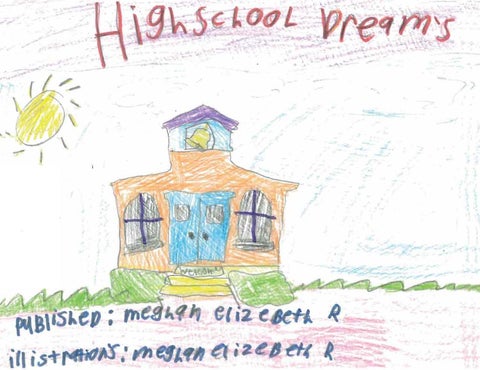 HigHScHOOL Dream's
welcome
PUBLISHED: meghan elizeBeth R
illistrations: meghan elizeBeth R